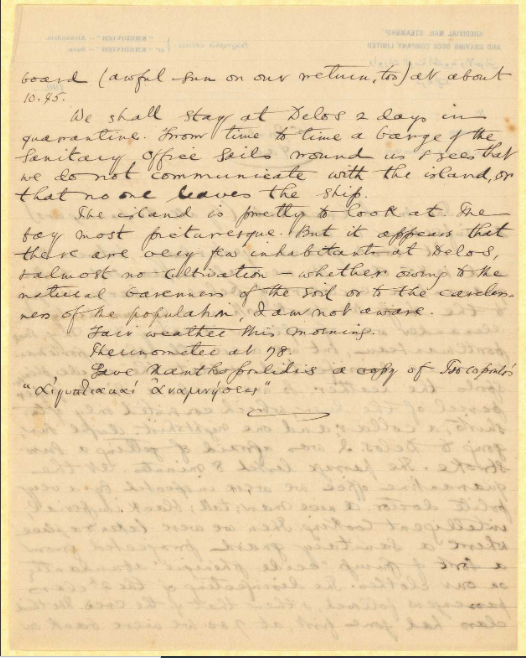 board (awful sun on our return, too) at about
10.45.
We shall stay at Delos 2 days in
quarantine. From time to time a barge of the
Sanitary Office sails round us & sees that
we do not communicate with the island, or
that no one leaves the ship.
The island is pretty to look at. The
bay most picturesque. But it appears that
there are very few inhabitants at Delos,
& almost no cultivation – whether owing to the
natural barenness of the soil or to the careless-
ness of the population, I am not aware.
Fair weather this morning.
Thermometer at 78.
Gave Xanthopoulidis a copy of